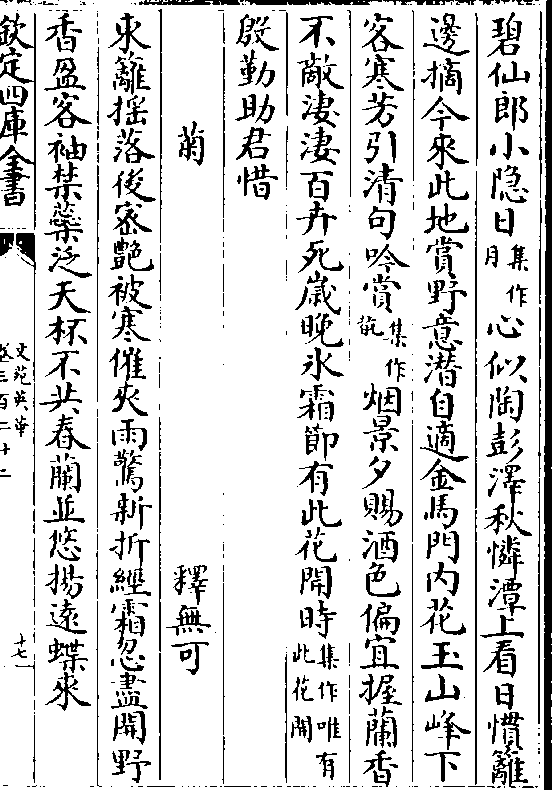 碧仙郎小隐日集作月心似陶彭澤秋憐潭上看日慣籬
邊摘今來此地賞野意潜自適金馬門内花玉山峰下
客寒芳引清句吟賞集作翫烟景夕賜酒色偏宜握蘭香
不敵淒淒百卉死嵗晚氷霜節有此花開時集作唯有此花開
殷勤助君惜
菊
釋無可
東籬揺落後宻艶被寒催夾雨驚新折經霜忽盡開野
香盈客袖禁蘂泛天杯不共春蘭並悠揚逺蝶來
欽定四庫全書
文苑英華
卷三百二十二
十七